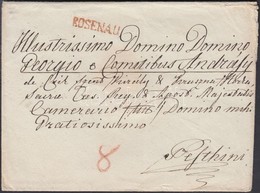 ROSENAU
Illustrissimo Domino Domino
Georgio e Comitibus Andrássy
de Csik Szent Király & Kraszna Horka
Sacrae Caes. Reg. & Apost. Majestatis
Camerario Domino mihi
Gratiosissimo
8
Pesthini